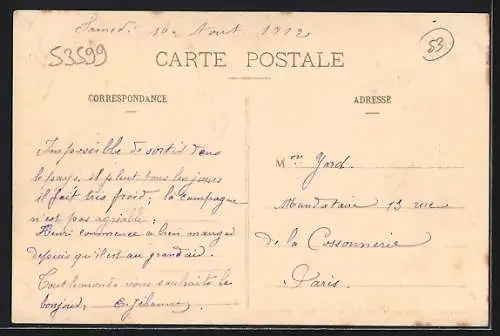 Samedi 10 Aout 1912
53599
53
CARTE POSTALE
CORRESPONDANCE
Impossible de sortir dans
le pays, il pleut tous les jours
il fait très froid; la campagne
n'est pas agréable;
Henri commence a bien manger
depuis qu'il est au grand air.
Tout le monde vous souhaite le
bonjour,
ADRESSE
Mon Yard
Mandataire 13 rue
de la Cossonnerie
Paris.